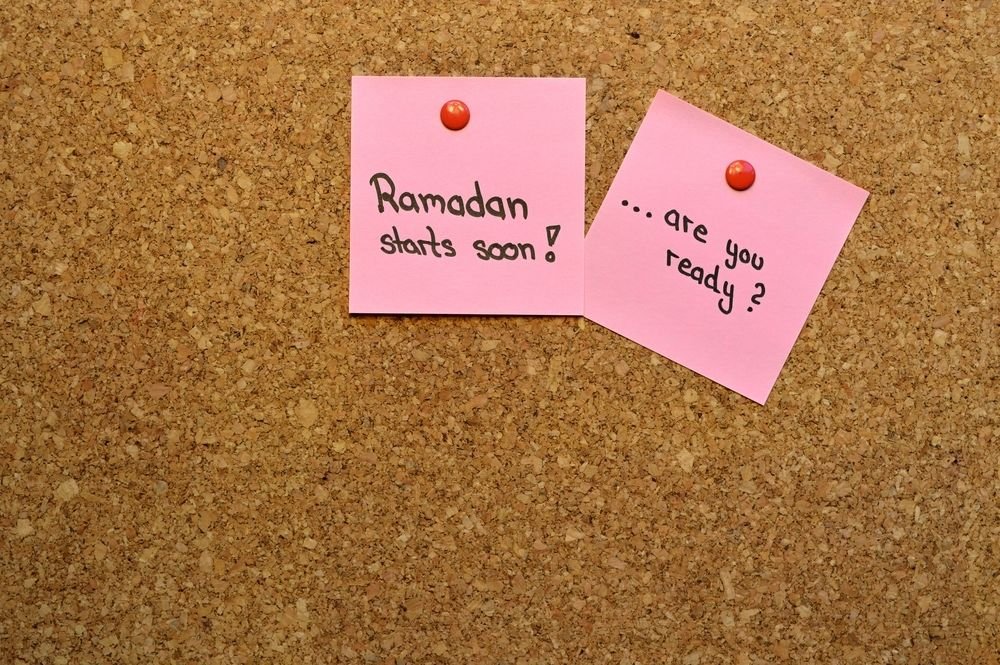 Ramadan
starts soon!
... are you
ready?